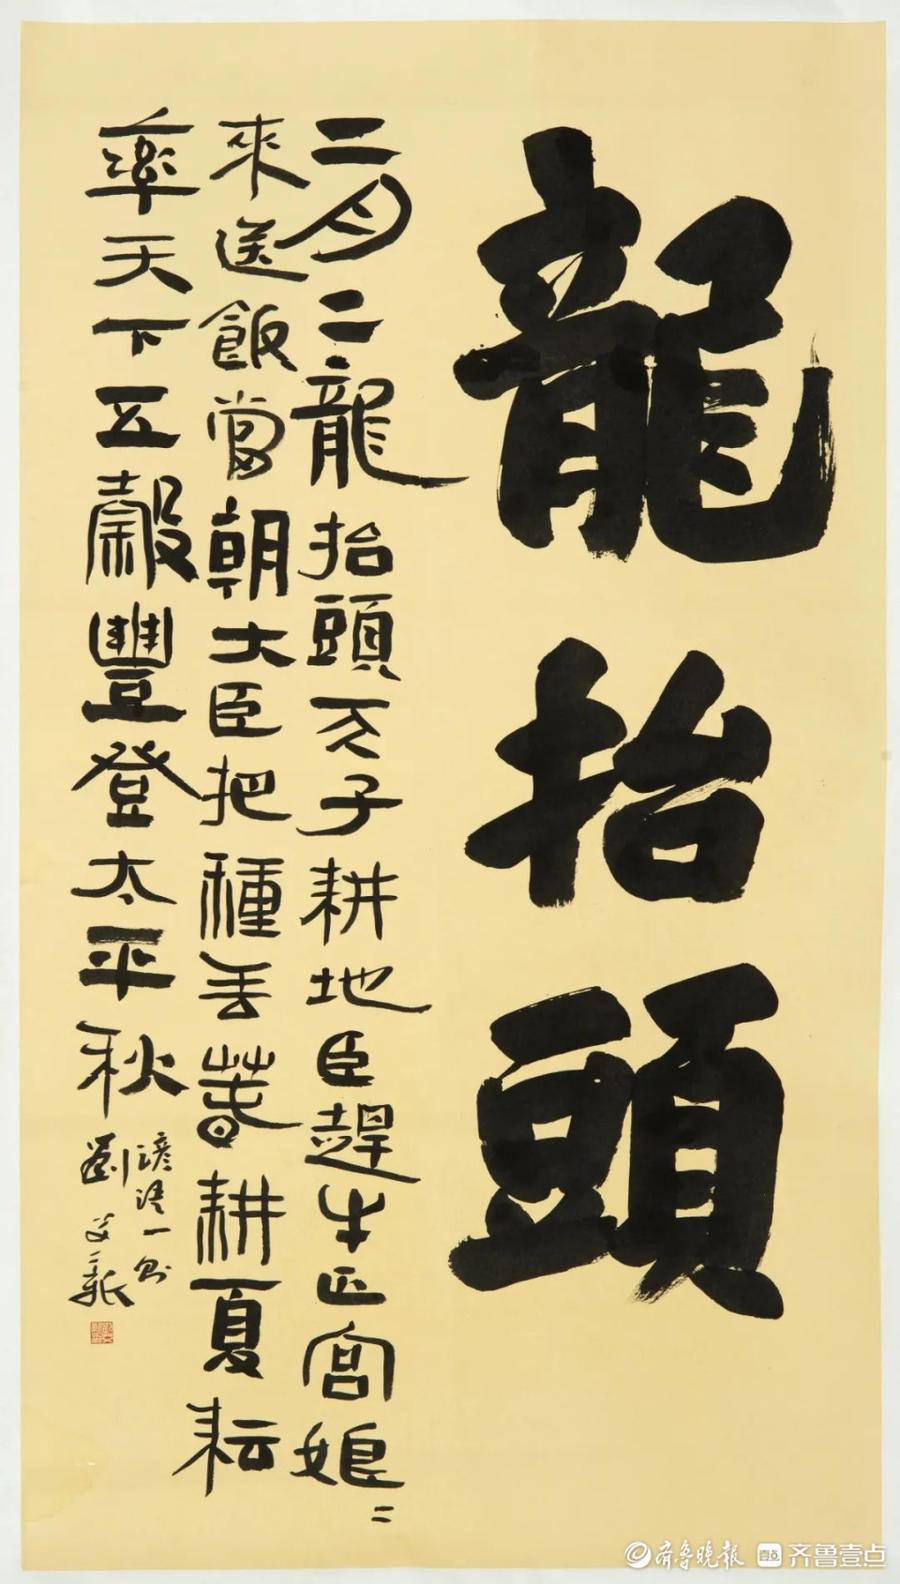 龍抬頭
二月二龍抬頭天子耕地臣趕牛正宮娘〻
來送飯當朝大臣把種丟春耕夏耘
率天下五穀豐登太平秋
諺語一則
劉
齐鲁晚报 齐鲁壹点